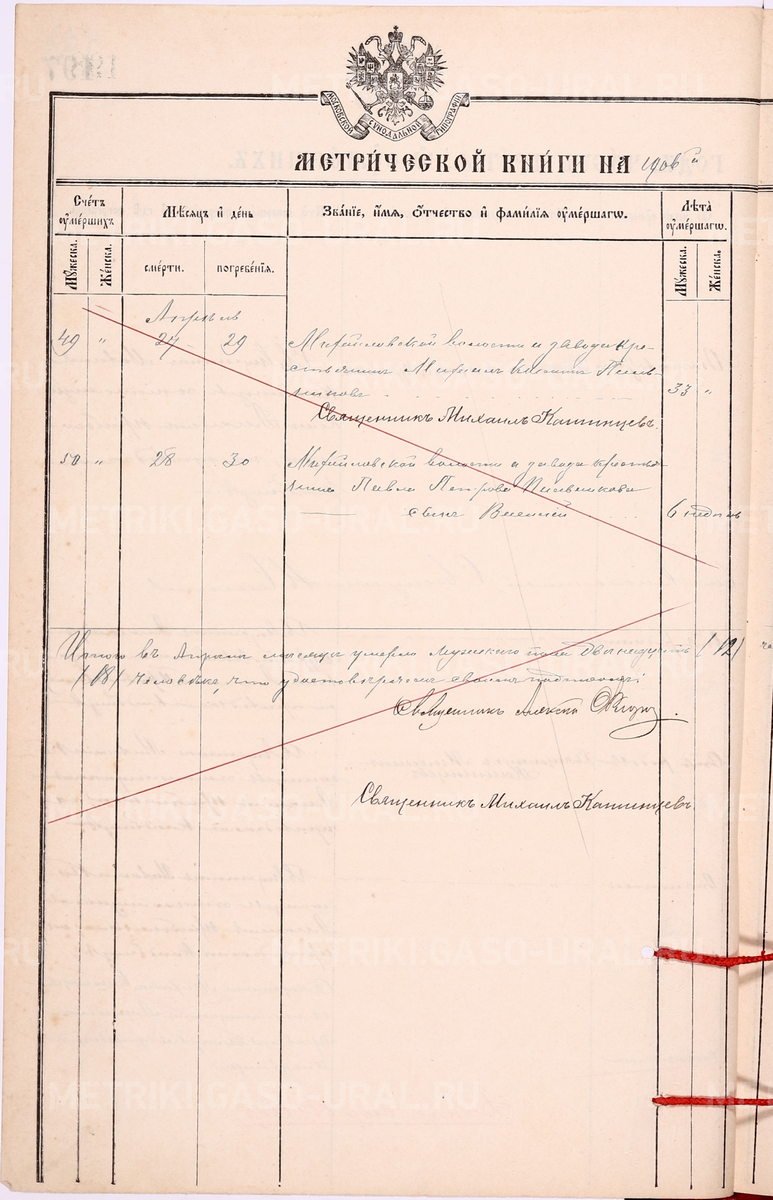 МОСКОВСКОЙ СѴНОДАЛЬНОЙ ТИПОГРАФІИ
МЕТРИ́ЧЕСКОЙ КНИ́ГИ НА 1906й
Сче́тъ ᲂу҆ме́ршихъ.
Мѣ́сяцъ и҆ де́нь
Зва́нїе, и҆́мя, ѻ҆́тчество и҆ фами́лїя ᲂу҆ме́ршагѡ.
Лѣ́та ᲂу҆ме́ршагѡ.
Мꙋ́жеска.
Же́нска.
сме́рти.
погребе́нїя.
Мꙋ́жеска.
Же́нска.
Апрѣль
49 " 27 29 Михайловской волости и завода кре-
стьянинъ Михаилъ
33 "
Священникъ Михаилъ Капинцевъ.
50 " 28 30 Михайловской волости и завода крестья
нина Павла Петрова
сынъ Василій 6 недѣль
Итого въ Апрѣлѣ мѣсяцѣ умерло мужского пола двѣнадцать (12)
(18) человѣкъ, что удостовѣряемъ своимъ подписомъ:
Священникъ
Священникъ Михаилъ Капинцевъ
METRIKI.GASO-URAL.RU
METRIKI.GASO-URAL.RU
METRIKI.GASO-URAL.RU